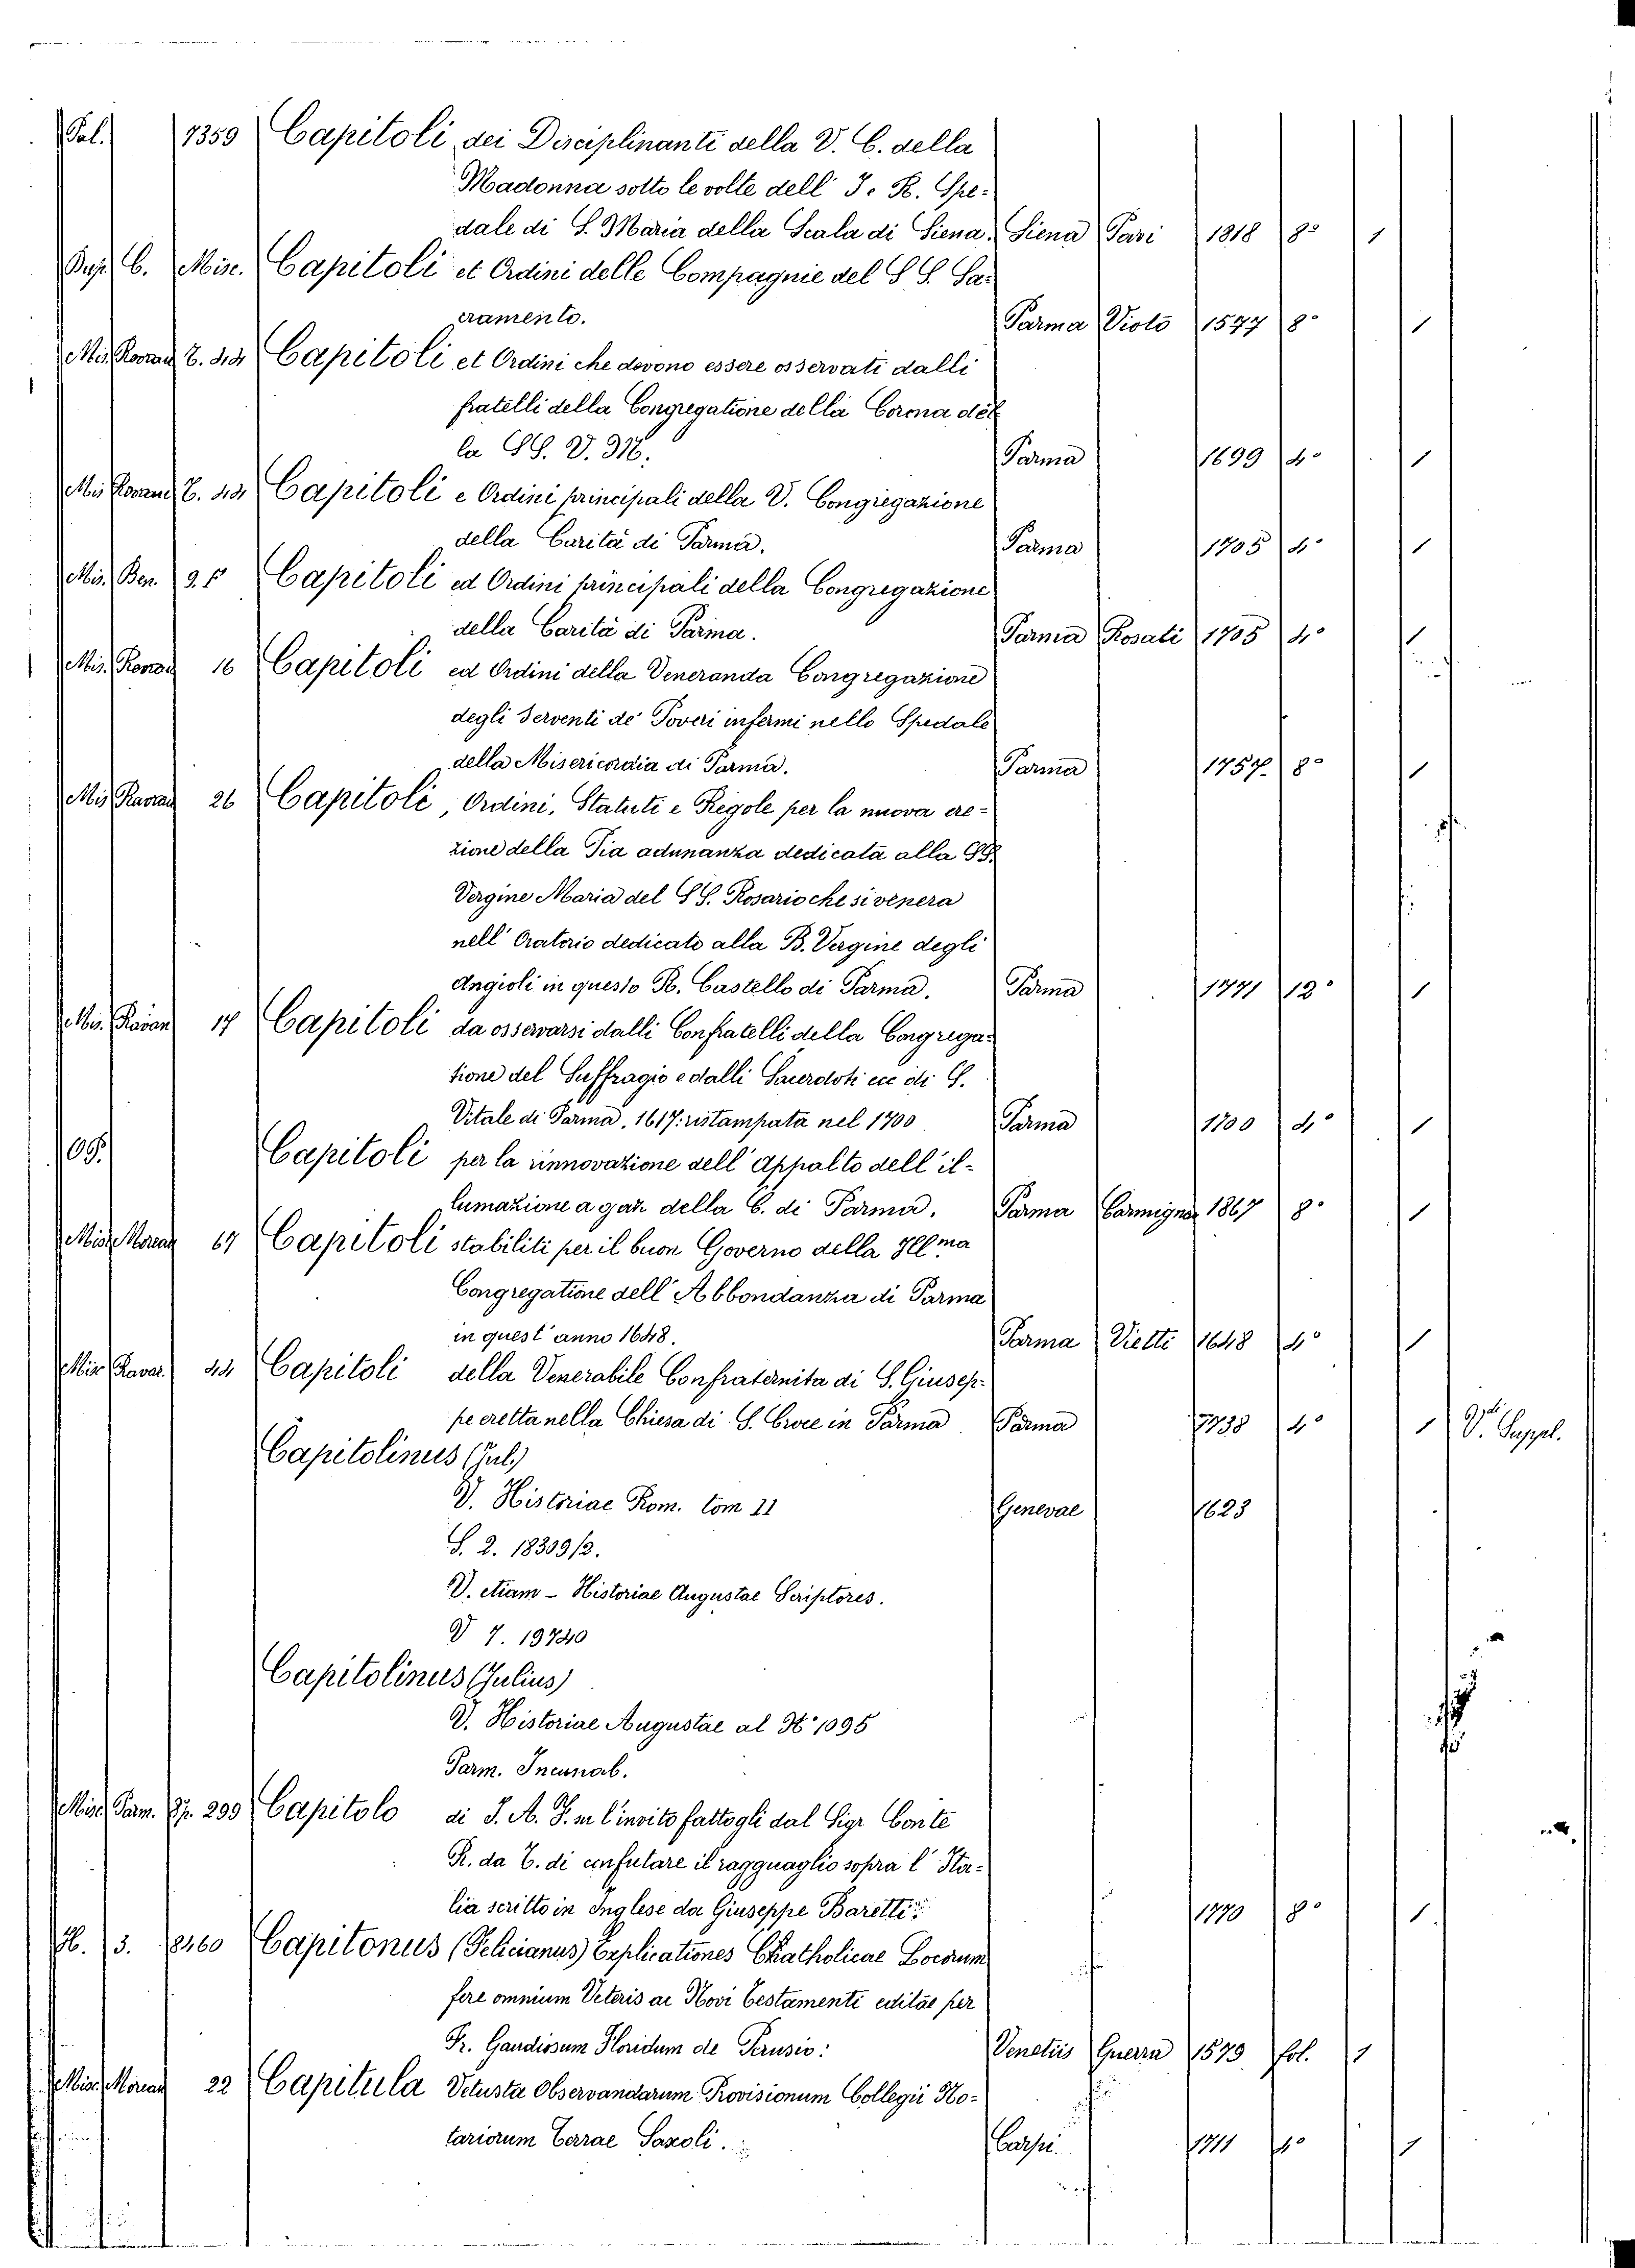 Pal. 1359 Capitoli dei Disciplinanti della V. C. della
Madonna sotto le volte dell' I. R. Spe-
dale di S. Maria della Scala di Siena. Siena Pari 1818 8° 1
C. Misc. Capitoli et Ordini delle Compagnie del S S. Sa-
cramento. Parma Vioto 1577 8° 1
Capitoli et Ordini che devono essere osservati dalli
fratelli della Congregatione della Corona del
la SS. V. M. Parma 1699 4° 1
Capitoli e Ordini principali della V. Congregazione
della Carità di Parma. Parma 1705 4° 1
Mis. Ben. Capitoli ed Ordini principali della Congregazione
della Carità di Parma. Parma Rosati 1705 4° 1
Mis. 16 Capitoli ed Ordini della Veneranda Congregazione
degli Serventi de' Poveri infermi nello Spedale
della Misericordia di Parma. Parma 1757. 8° 1
Mis. 26 Capitoli, Ordini, Statuti e Regole per la nuova ere-
zione della Pia adunanza dedicata alla SS.
Vergine Maria del S S. Rosario che si venera
nell' Oratorio dedicato alla B. Vergine degli
Angioli in questo R. Castello di Parma. Parma 1771 12° 1
Mis. 17 Capitoli da osservarsi dalli Confratelli della Congrega-
tione del Suffragio e dalli Sacerdoti ecc di S.
Vitale di Parma, 1617. ristampata nel 1700 Parma 1700 4° 1
Capitoli per la rinnovazione dell' Appalto dell' il-
lumazione a gaz della C. di Parma. Parma Carmignani 1867 8° 1
Misc. 67 Capitoli stabiliti per il buon Governo della Ill.ma
Congregatione dell' Abbondanza di Parma
in quest' anno 1648. Parma Vietti 1648 4° 1
Mis. Ravar. 44 Capitoli della Venerabile Confraternita di S. Giusep-
pe eretta nella Chiesa di S. Croce in Parma Parma 1738 4° 1 V. Suppl.
Capitolinus (Jul.)
V. Historiae Rom. tom II Genevae 1623
S. 2. 18309/2.
V. etiam - Historiae Augustae Scriptores.
V 7. 19740
Capitolinus (Julius)
V. Historiae Augustae al N° 1095
Parm. Incunab.
Misc. Parm. 299 Capitolo di I. A. F. su l'invito fattogli dal Sigr Conte
R. da C. di confutare il ragguaglio sopra l' Ita-
lia scritto in Inglese da Giuseppe Baretti. 1770 8° 1
H. 3. 18460 Capitonus (Felicianus) Explicationes Chatholicae Locorum
fere omnium Veteris ac Novi Testamenti editae per
Fr. Gaudiosum Floridum de Perusio: Venetiis Guerra 1579 fol. 1
Misc. 22 Capitula Vetusta Observandarum Provisionum Collegii No-
tariorum Terrae Saxoli. Carpi 1711 4° 1